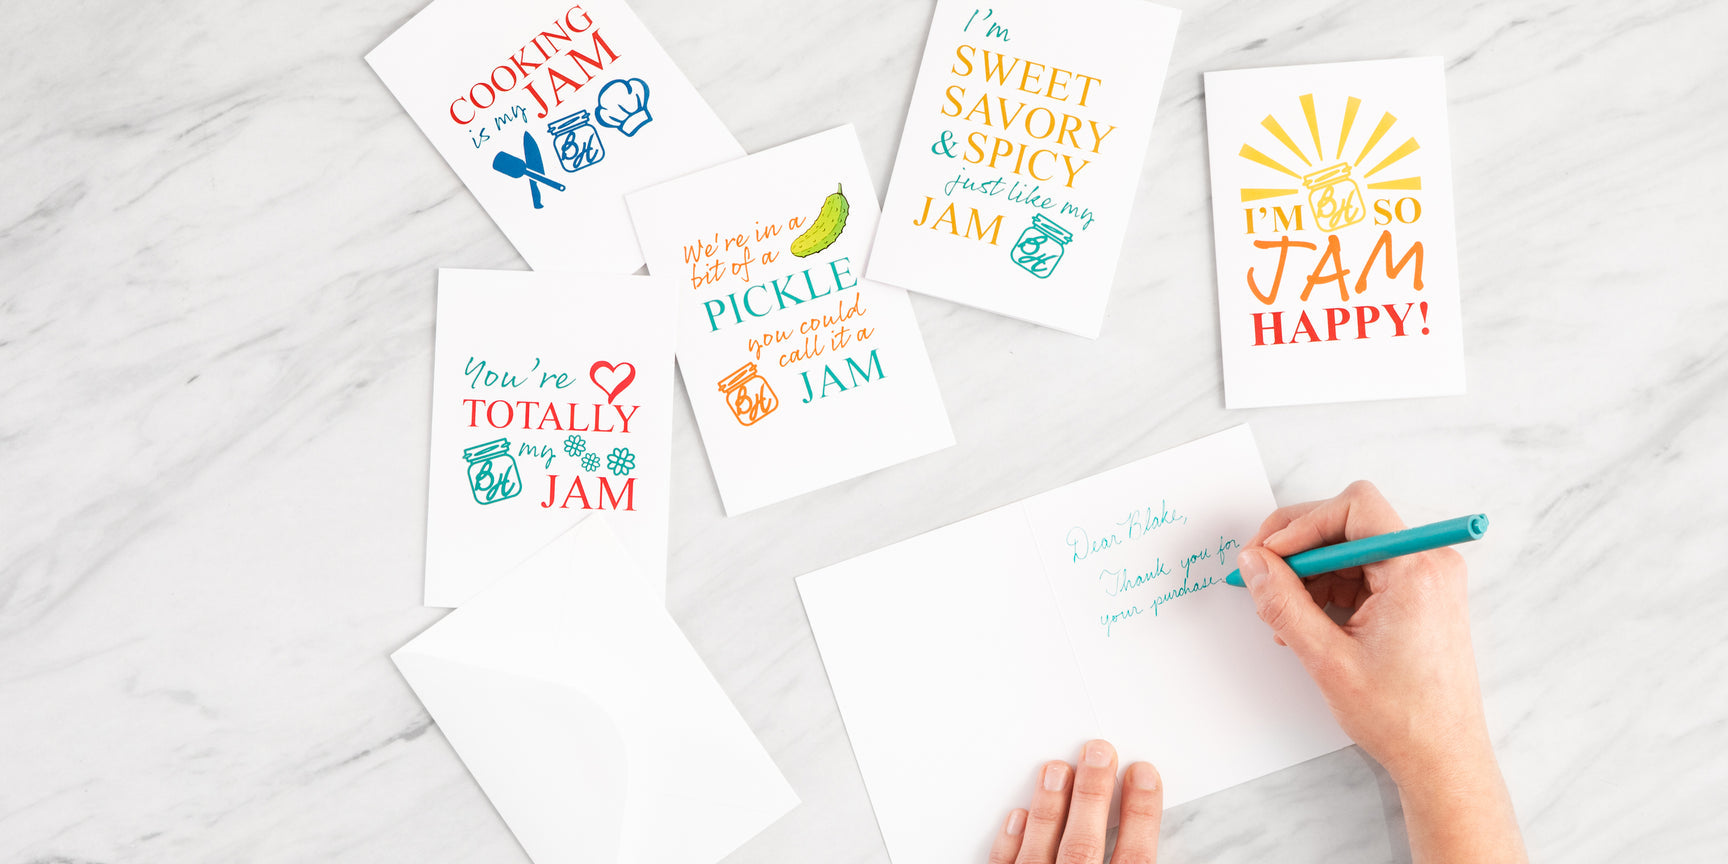 COOKING
is my JAM
BH
I'm
SWEET
SAVORY
& SPICY
just like my
JAM BH
I'M BH SO
JAM
HAPPY!
We're in a
bit of a
PICKLE
you could
call it a
BH JAM
You're
TOTALLY
BH my
JAM
Dear Blake,
Thank you for
your purchase